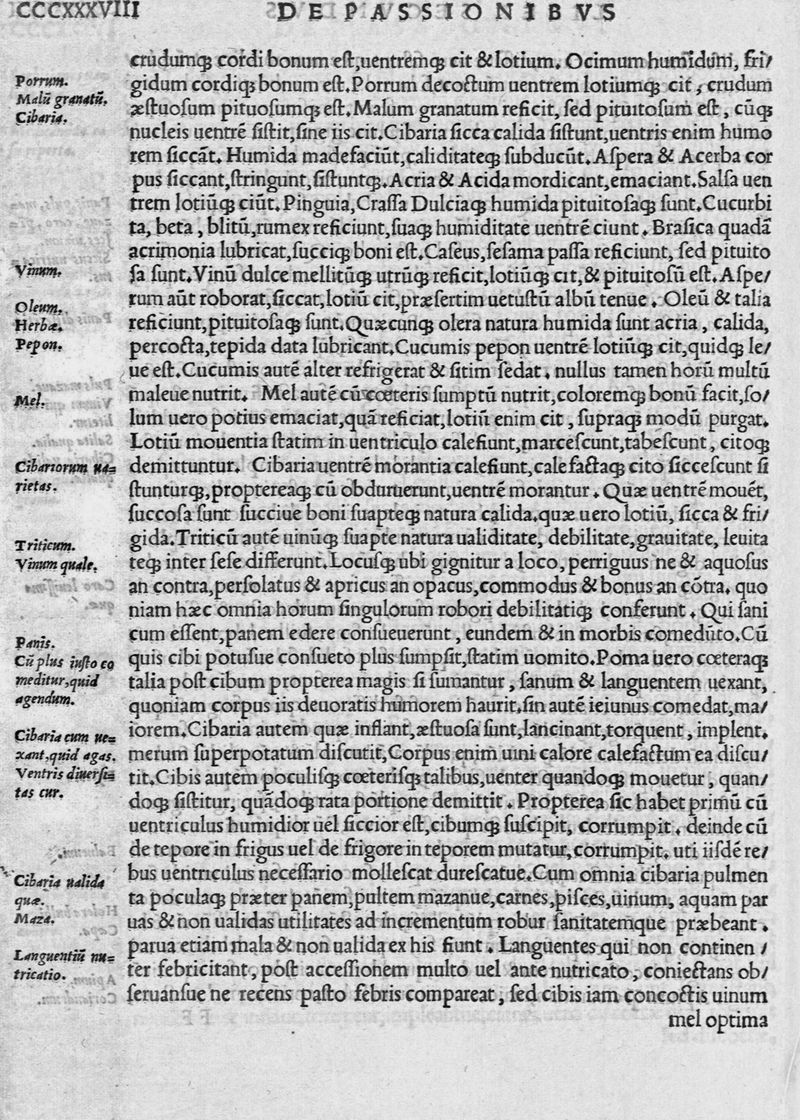 CCCXXXVIII DE PASSIONIBVS
crudumqꝫ cordi bonum eſt,uentremqꝫ cit & lotium. Ocimum humidum, fri/
Porrum.
gidum cordiqꝫ bonum eſt.Porrum decoctum uentrem lotiumqꝫ cit, crudum
Malū granatū.
æſtuoſum pituoſumqꝫ eſt.Malum granatum reficit, ſed pituitoſum eſt, cūqꝫ
Cibaria.
nucleis uentrē ſiſtit,ſine iis cit.Cibaria ſicca calida ſiſtunt,uentris enim humo
rem ſiccāt. Humida madefaciūt,caliditateqꝫ ſubducūt. Aſpera & Acerba cor
pus ſiccant,ſtringunt,ſiſtuntqꝫ.Acria & Acida mordicant,emaciant.Salſa uen
trem lotiūqꝫ ciūt. Pinguia,Craſſa Dulciaqꝫ humida pituitoſaqꝫ ſunt.Cucurbi
ta, beta, blitū,rumex reficiunt,ſuaqꝫ humiditate uentrē ciunt. Braſica quadā
acrimonia lubricat,ſucciqꝫ boni eſt.Caſeus,ſeſama paſſa reficiunt, ſed pituito
Vinum.
ſa ſunt.Vinū dulce mellitūqꝫ utrūqꝫ reficit,lotiūqꝫ cit,& pituitoſū eſt. Aſpe/
rum aūt roborat,ſiccat,lotiū cit,præſertim uetuſtū albū tenue. Oleū & talia
Oleum.
Herbæ.
reficiunt,pituitoſaqꝫ ſunt.Quæcunqꝫ olera natura humida ſunt acria, calida,
Pepon.
percocta,tepida data lubricant.Cucumis pepon uentrē lotiūqꝫ cit,quidqꝫ le/
ue eſt.Cucumis autē alter refrigerat & ſitim ſedat. nullus tamen horū multū
Mel.
maleue nutrit. Mel autē cū cœteris ſumptū nutrit,coloremqꝫ bonū facit,ſo/
lum uero potius emaciat,quā reficiat,lotiū enim cit, ſupraqꝫ modū purgat.
Lotiū mouentia ſtatim in uentriculo calefiunt,marceſcunt,tabeſcunt, citoqꝫ
Cibariorum ua=
demittuntur. Cibaria uentrē morantia calefiunt,calefactaqꝫ cito ſicceſcunt ſi
rietas.
ſtunturqꝫ,proptereaqꝫ cū obduruerunt,uentrē morantur. Quæ uentrē mouēt,
ſuccoſa ſunt ſucciue boni ſuapteqꝫ natura calida.quæ uero lotiū, ſicca & fri/
Triticum.
gida.Triticū autē uinūqꝫ ſuapte natura ualiditate, debilitate,grauitate, leuita
Vinum quale.
teqꝫ inter ſeſe differunt.Locuſqꝫ ubi gignitur a loco, perriguus ne & aquoſus
an contra,perſolatus & apricus an opacus,commodus & bonus an cōtra. quo
niam hæc omnia horum ſingulorum robori debilitatiqꝫ conferunt. Qui ſani
Panis.
cum eſſent,panem edere conſueuerunt, eundem & in morbis comedūto.Cū
Cū plus iuſto co
quis cibi potuſue conſueto plus ſumpſit,ſtatim uomito.Poma uero cœteraqꝫ
meditur,quid
talia poſt cibum propterea magis ſi ſumantur, ſanum & languentem uexant,
agendum.
quoniam corpus iis deuoratis humorem haurit.ſin autē ieiunus comedat,ma/
Cibaria cum ue=
iorem.Cibaria autem quæ inflant,æſtuoſa ſunt,lancinant,torquent, implent.
xant,quid agas.
merum ſuperpotatum diſcutit,Corpus enim uini calore calefactum ea diſcu/
Ventris diuerſi=
tit.Cibis autem poculiſqꝫ cœteriſqꝫ talibus,uenter quandoqꝫ mouetur, quan/
tas cur.
doqꝫ ſiſtitur, quādoqꝫ rata portione demittit. Propterea ſic habet primū cū
uentriculus humidior uel ſiccior eſt,cibumqꝫ ſuſcipit, corrumpit. deinde cū
de tepore in frigus uel de frigore in teporem mutatur,corrumpit. uti iiſdē re/
bus uentriculus neceſſario molleſcat dureſcatue.Cum omnia cibaria pulmen
Cibaria ualida
quæ.
ta poculaqꝫ præter panem,pultem mazanue,carnes,piſces,uinum, aquam par
Maza.
uas & non ualidas utilitates ad incrementum robur ſanitatemque præbeant.
parua etiam mala & non ualida ex his fiunt. Languentes qui non continen /
Languentiū nu=
tricatio.
ter febricitant, poſt acceſſionem multo uel ante nutricato, coniectans ob/
ſeruanſue ne recens paſto febris compareat, ſed cibis iam concoctis uinum
mel optima